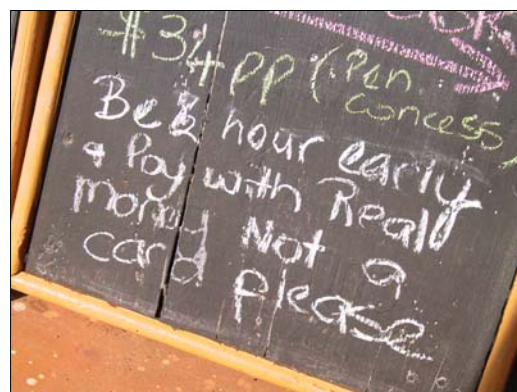 $34 pp (Pen
concess
Be ½ hour early
& Pay with Real
money Not a
card please